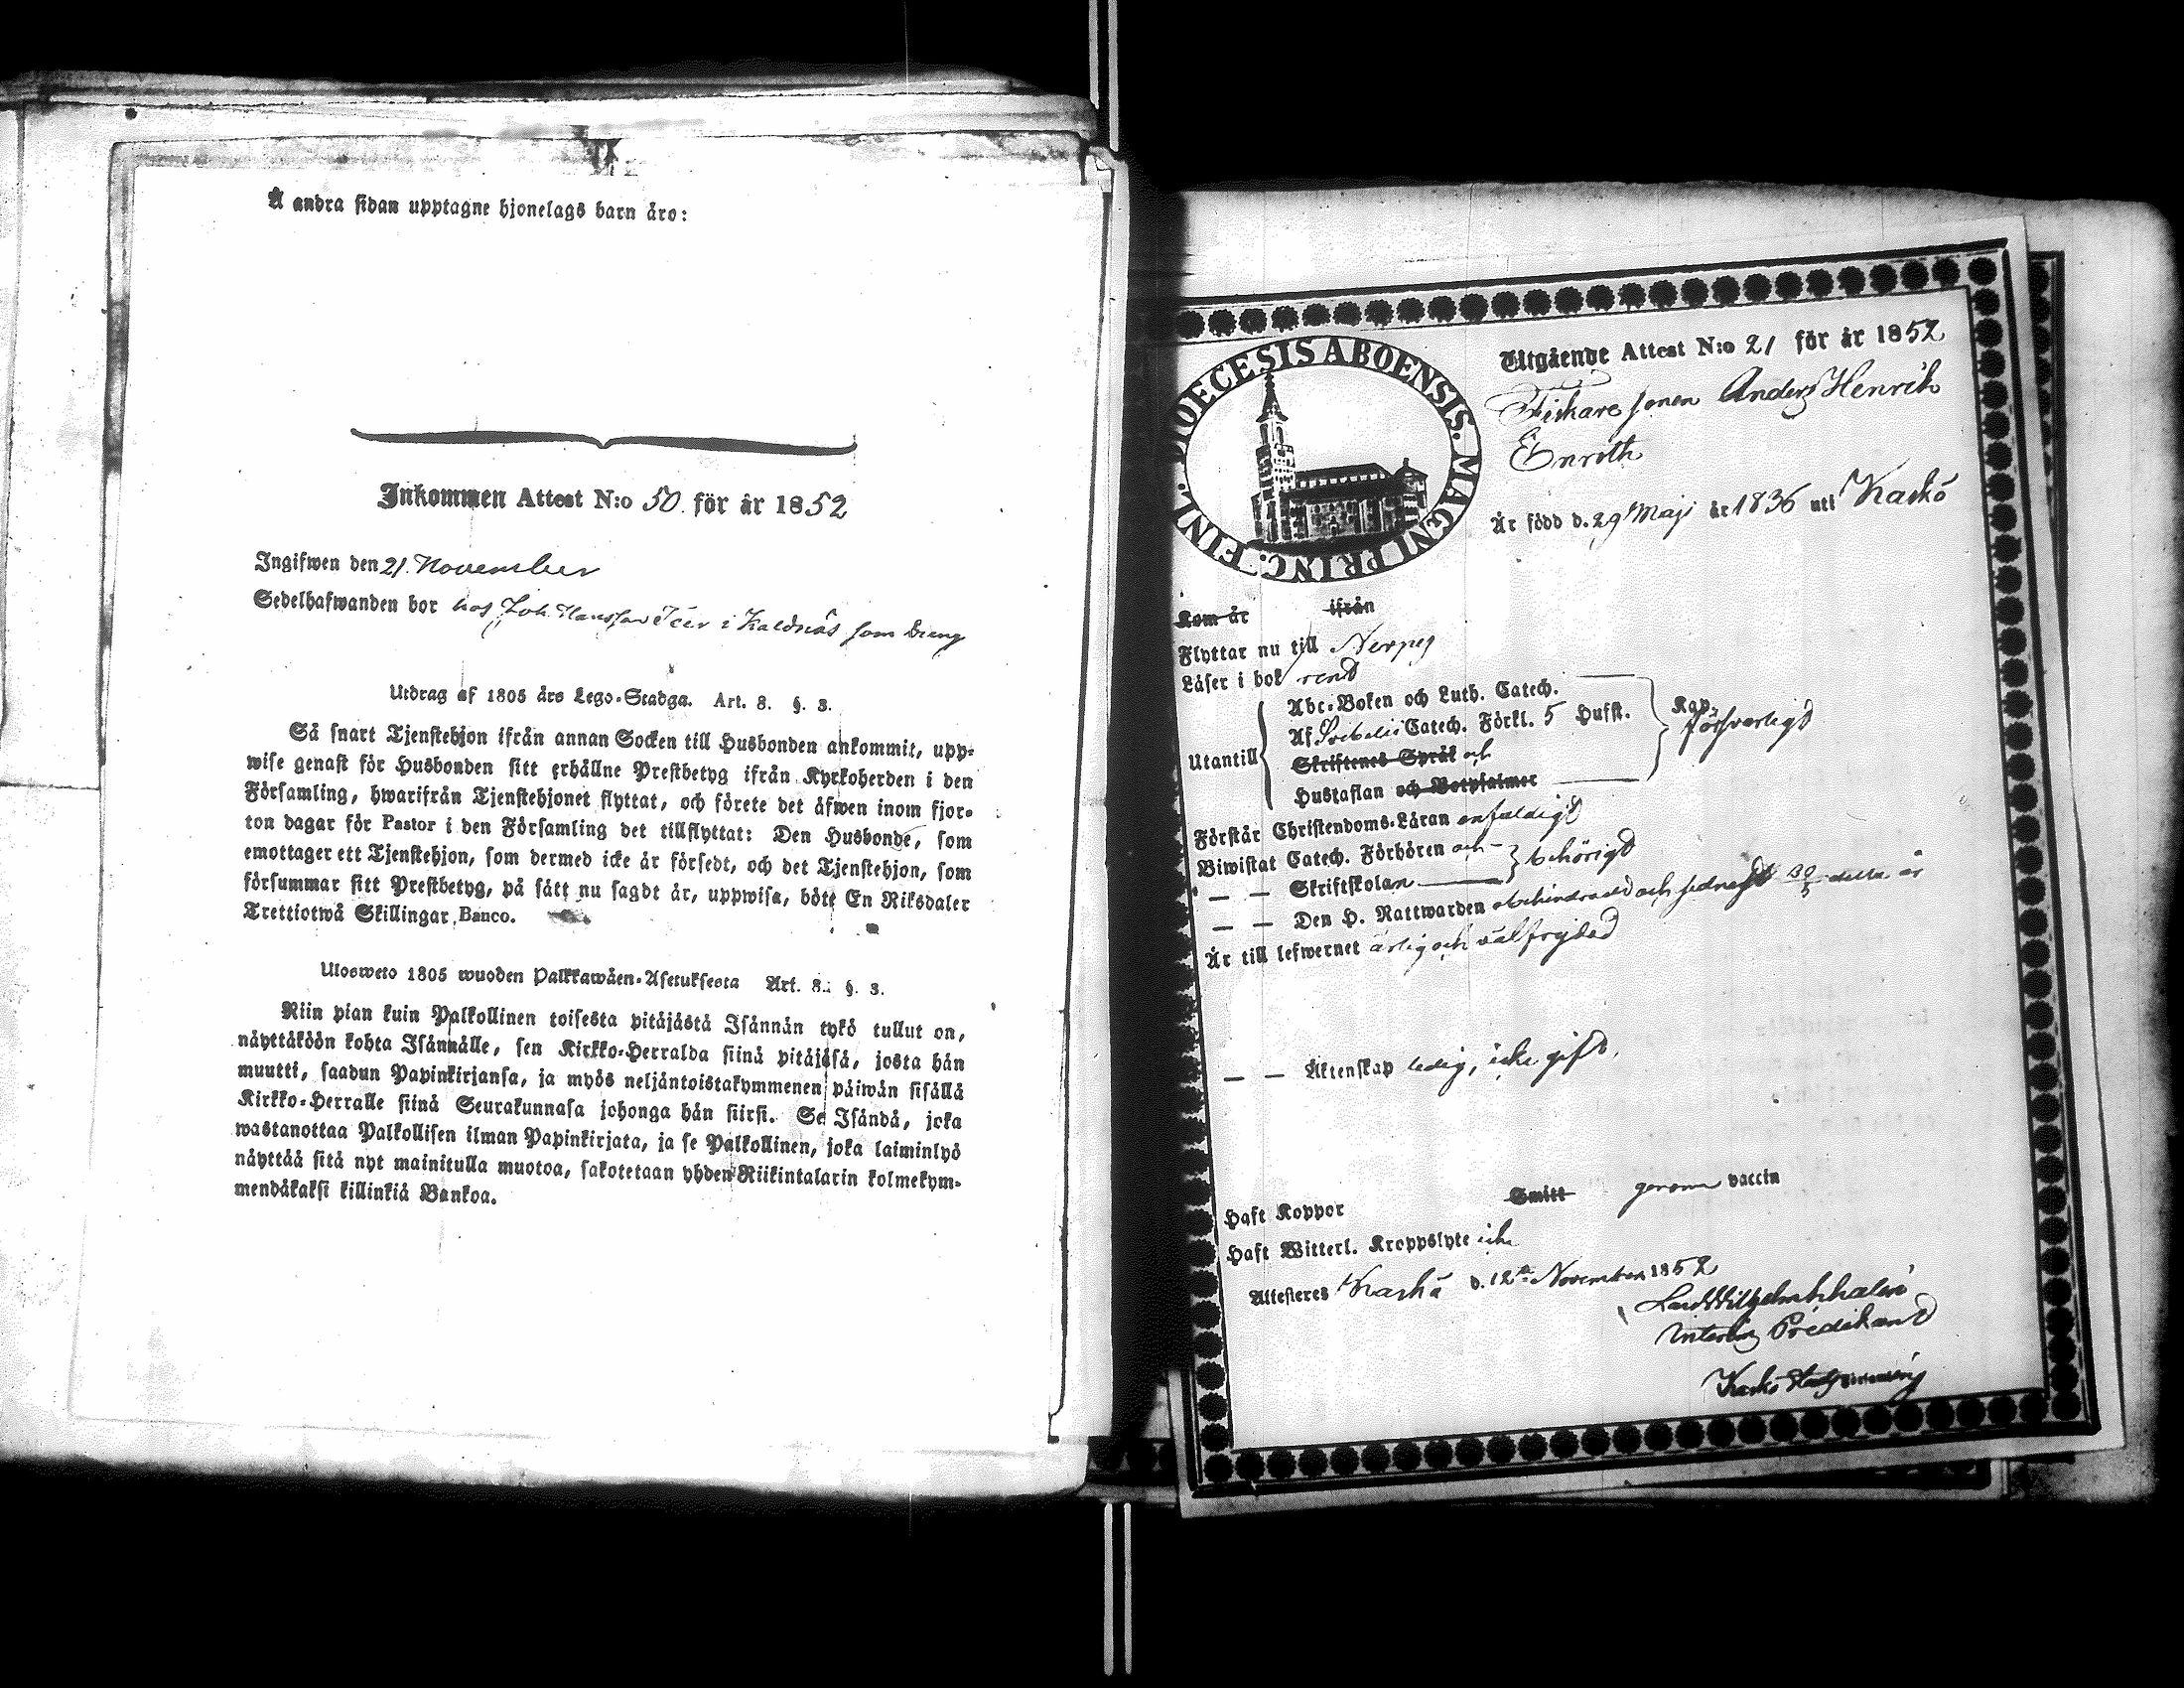 Å andra sidan upptagne hjonelags barn äro:
Inkommen Attest N:o 50. för år 1852
Ingifwen den 21. November
Sedelhafwanden bor hos Joh. Hansson Teir i Kaldnäs som Dreng
Utdrag af 1805 års Lego-Stadga. Art. 8. §. 3.
Så snart Tjenstehjon ifrån annan Socken till Husbonden ankommit, upp-
wise genast för Husbonden sitt erhållne Prestbetyg ifrån Kyrkoherden i den
Församling, hwarifrån Tjenstehjonet flyttat, och förete det äfwen inom fjor-
ton dagar för Pastor i den Församling det tillflyttat: Den Husbonde, som
emottager ett Tjenstehjon, som dermed icke är försedt, och det Tjenstehjon, som
försummar sitt Prestbetyg, på sätt nu sagdt är, uppwisa, böte En Riksdaler
Trettiotwå Skillingar Banco.
Ulosweto 1805 wuoden Palkkawäen-Asetuksesta Art. 8. §. 3.
Niin pian kuin Palkollinen toisesta pitäjästä Isännän tykö tullut on,
näyttäköön kohta Isännälle, sen Kirkko-Herralda siinä pitäjäsä, josta hän
muutti, saadun Papinkirjansa, ja myös neljäntoistakymmenen päiwän sisällä
Kirkko-Herralle siinä Seurakunnasa johonga hän siirsi. Se Isändä, joka
wastanottaa Palkollisen ilman Papinkirjata, ja se Palkollinen, joka laiminlyö
näyttää sitä nyt mainitulla muotoa, sakotetaan yhden Riikintalarin kolmekym-
mendäkaksi killinkiä Bankoa.
DIOECESIS ABOENSIS. MAGNI PRINC. FINL.
Utgående Attest N:o 21 för år 1852
Fiskare sonen Anders Henrik
Enroth
Är född d. 29 Maji år 1836 uti Kaskö
Kom år ifrån
Flyttar nu till Nerpes
Läser i bok rent
Utantill
Abc-Boken och Luth. Catech.
Af Svebelii Catech. Förkl. 5 Hufst.
Skriftenes Språk och
Hustaflan och Botpsalmer
Kap.
försvarligt
Förstår Christendoms-Läran enfaldigt
Biwistat Catech. Förhören och
— — Skriftskolan behörigt
— — Den H. Nattwarden obehindrad och sednast d. detta år
Är till lefwernet ärlig och välfrejdad
— — Äktenskap ledig, icke gift.
Haft Koppor Smitt genom vaccin
Haft Witterl. Kroppslyte icke
Attesteres Kaskö d. 12te November 1852
Interims Predikant